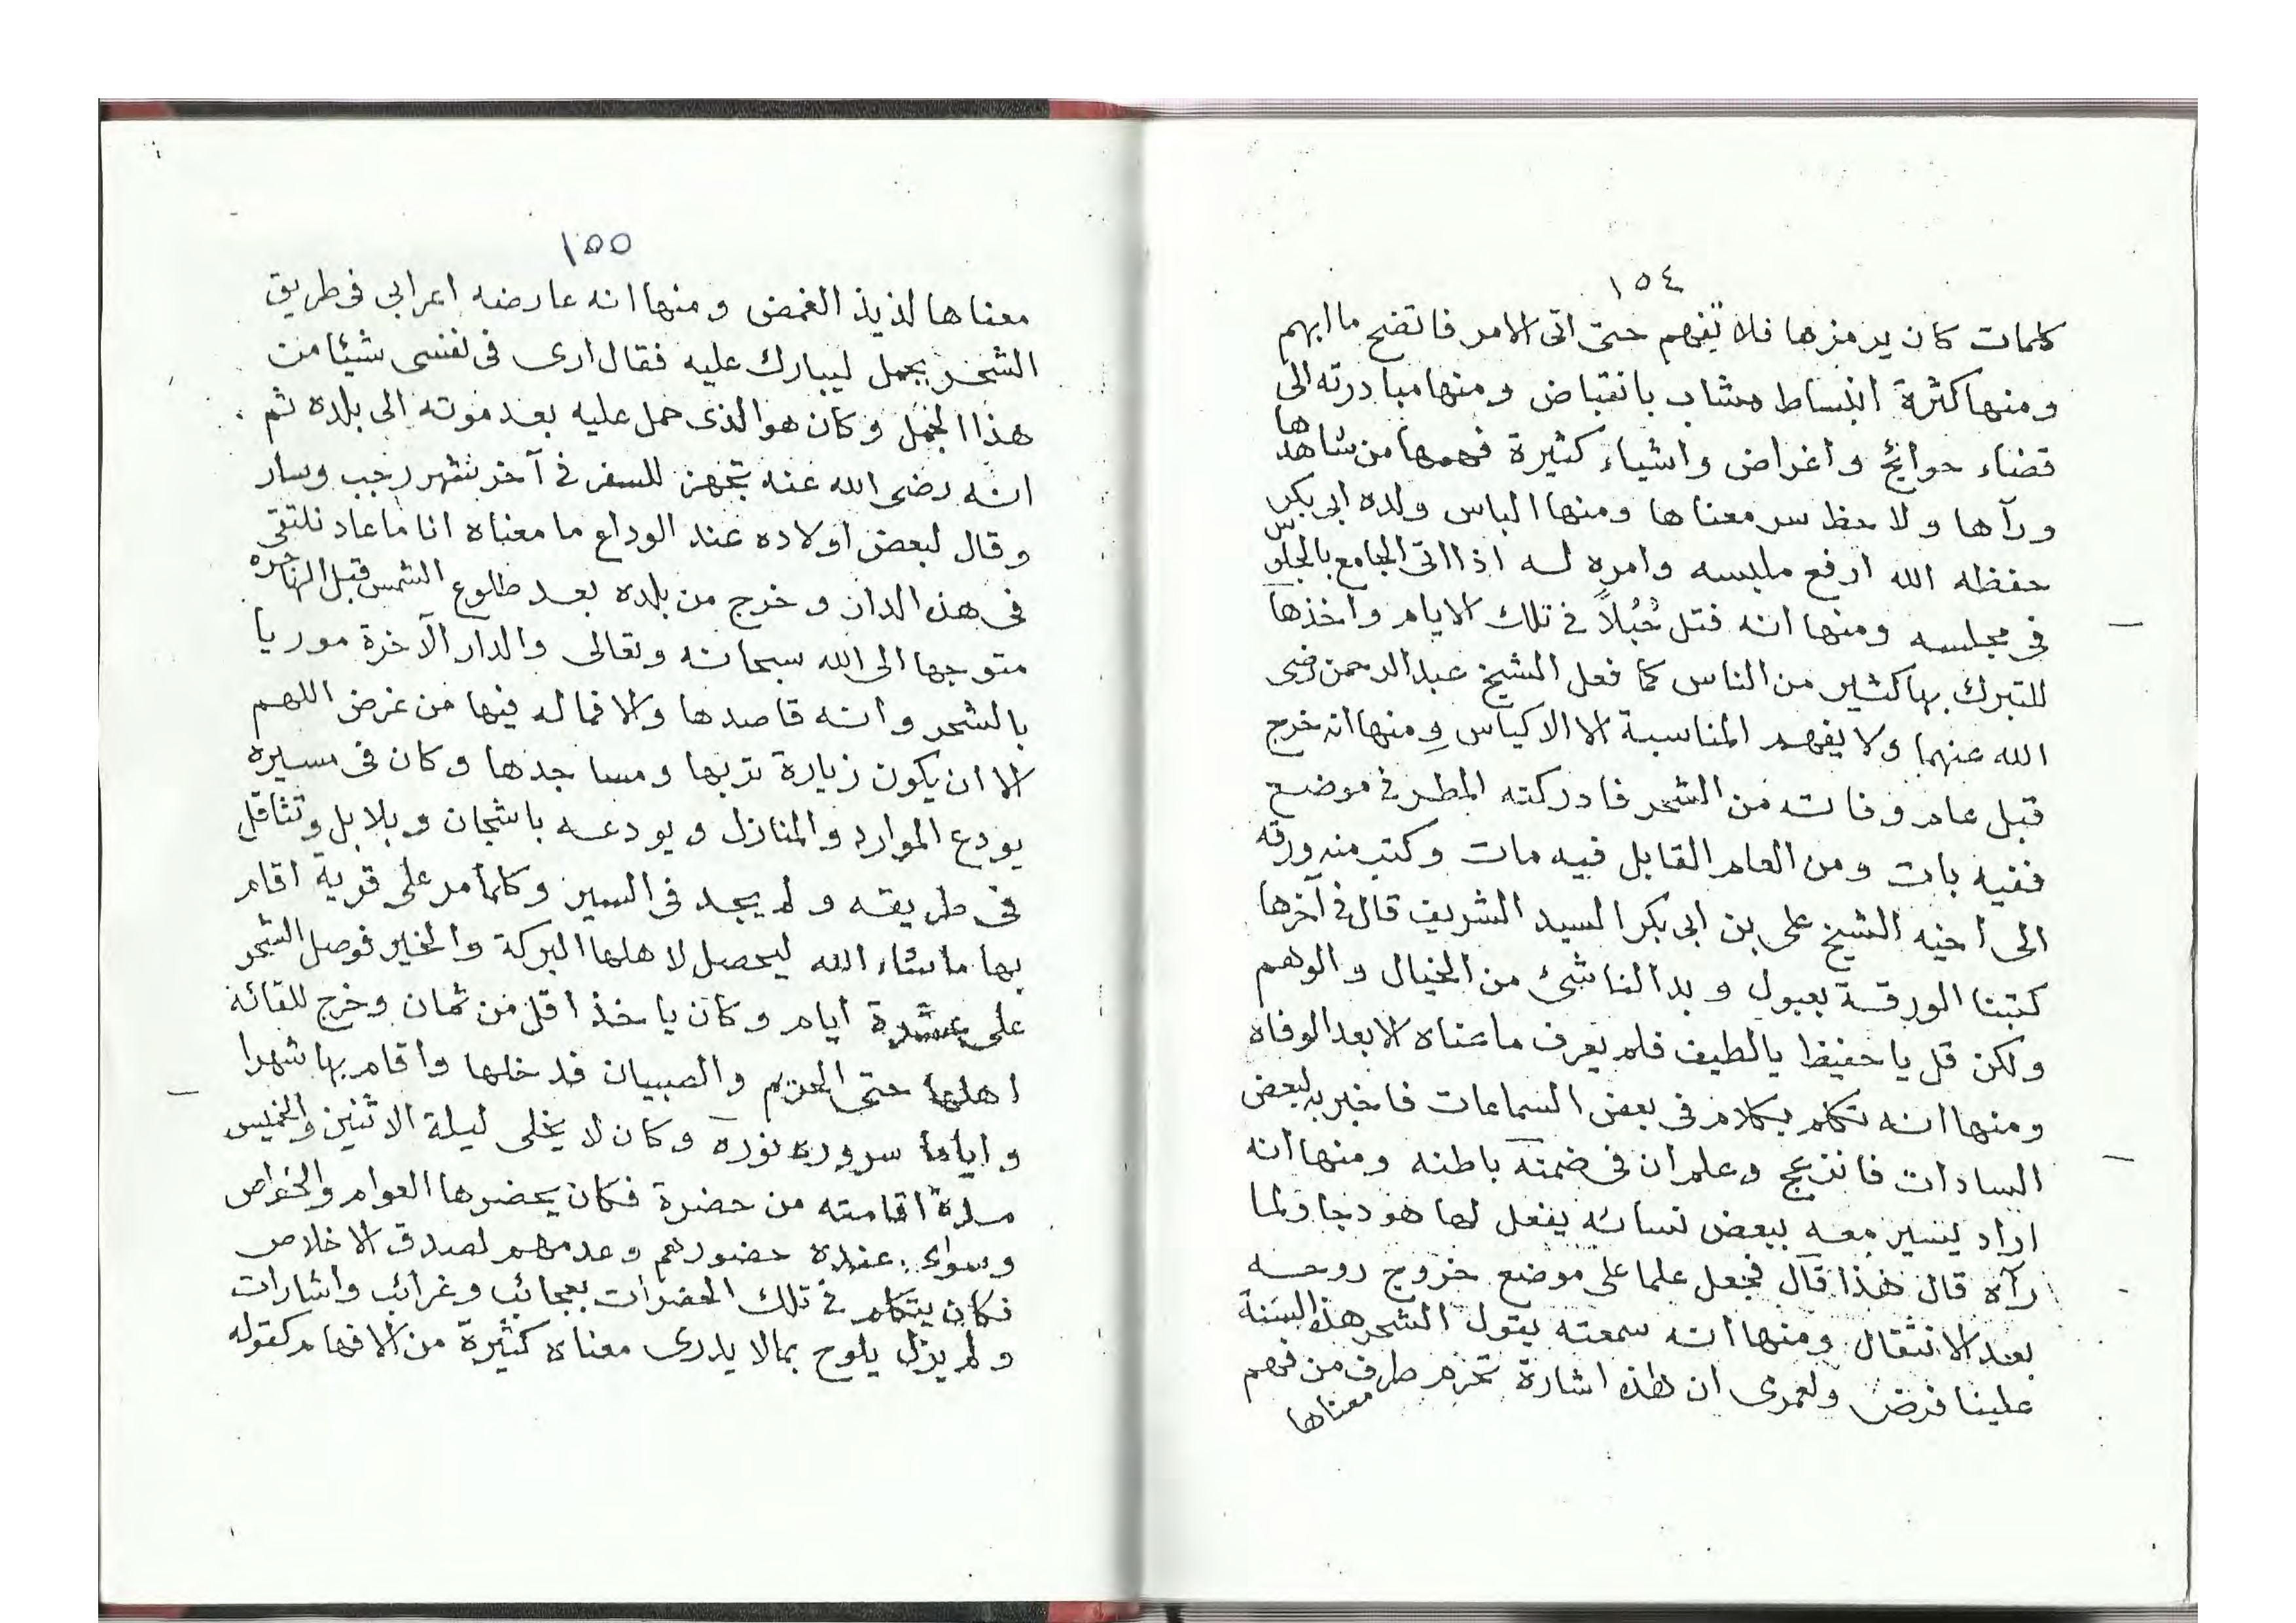 ١٥٤
كلمات كان يرمزها فلا تفهم حتى اتى الامر فاتضح ما ابهم
ومنها كثرة انبساط مشاب بانقباض ومنها مبادرته الى
قضاء حوائج واغراض واشياء كثيرة فهمها من شاهدها
ورآها ولاحظ سر معناها ومنها الباس ولده ابى بكر
حفظه الله ارفع ملبسه وامره له اذا اتى الجامع بالجلوس
فى مجلسه ومنها انه فتل حُبُلاً فى تلك الايام واخذها
للتبرك بها كثير من الناس كما فعل الشيخ عبد الرحمن رضى
الله عنهما ولا يفهم المناسبة الا الاكياس ومنها انه خرج
قبل عام وفاته من الشحر فادركته المطر فى موضع
ففيه بات ومن العام القابل فيه مات وكتب منه ورقه
الى اخيه الشيخ على بن ابى بكر السيد الشريف قال فى آخرها
كتبنا الورقة بعبول وبدا الناشئ من الخيال والوهم
ولكن قل يا حفيظ يالطيف فلم يعرف ما عناه الا بعد الوفاه
ومنها انه تكلم بكلام فى بعض السماعات فاخبر به لبعض
السادات فانزعج وعلم ان فى ضمنه باطنه ومنها انه
اراد يسير معه ببعض نسائه يفعل لها هودجا ولما
رآه قال هذا قال فجعل علما على موضع خروج روحه
بعد الانتقال ومنها انه سمعته يقول الشحر هذه السنة
علينا فرض ولعمرى ان هذه اشارة تحزم طرف من فهم
معناها
١٥٥
معناها لذيذ الغمض ومنها انه عارضه اعرابى فى طريق
الشحر بجمل ليبارك عليه فقال ارى فى نفسى شيئا من
هذا الجمل وكان هو الذى حمل عليه بعد موته الى بلده ثم
انه رضى الله عنه تجهز للسفر فى آخر شهر رجب وسار
وقال لبعض اولاده عند الوداع ما معناه انا ما عاد نلتقى
فى هذه الدار وخرج من بلده بعد طلوع الشمس قبل الهاجره
متوجها الى الله سبحانه وتعالى والدار الآخرة موريا
بالشحر وانه قاصدها والا فماله فيها من غرض اللهم
الا ان يكون زيارة تربها ومساجدها وكان فى مسيره
يودع الموارد والمنازل ويودعه باشجان وبلابل وتثاقل
فى طريقه ولم يجد فى السير وكلما مر على قرية اقام
بها ما شاء الله ليحصل لاهلها البركة والخير فوصل الشحر
على عشرة ايام وكان ياخذ اقل من ثمان وخرج للقائه
اهلها حتى الحريم والصبيان فدخلها واقام بها شهرا
واياما سروره نوره وكان لا يخلى ليلة الاثنين والخميس
مدة اقامته من حضرة فكان يحضرها العوام والخواص
وسواء عنده حضورهم وعدمهم لصدق الاخلاص
فكان يتكلم فى تلك الحضرات بعجائب وغرائب واشارات
ولم يزل يلوح بمالا يدرى معناه كثيرة من الافهام كقوله